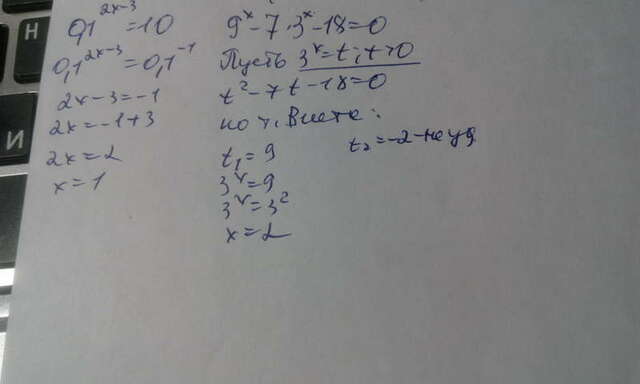 0,1^{2x-3}=10
0,1^{2x-3}=0,1^{-1}
2x-3=-1
2x=-1+3
2x=2
x=1
9^x-7·3^x-18=0
Пусть 3^x=t; t>0
t^2-7t-18=0
по т. Виета:
t_1=9
t_2=-2-не уд
3^x=9
3^x=3^2
x=2
Н
И